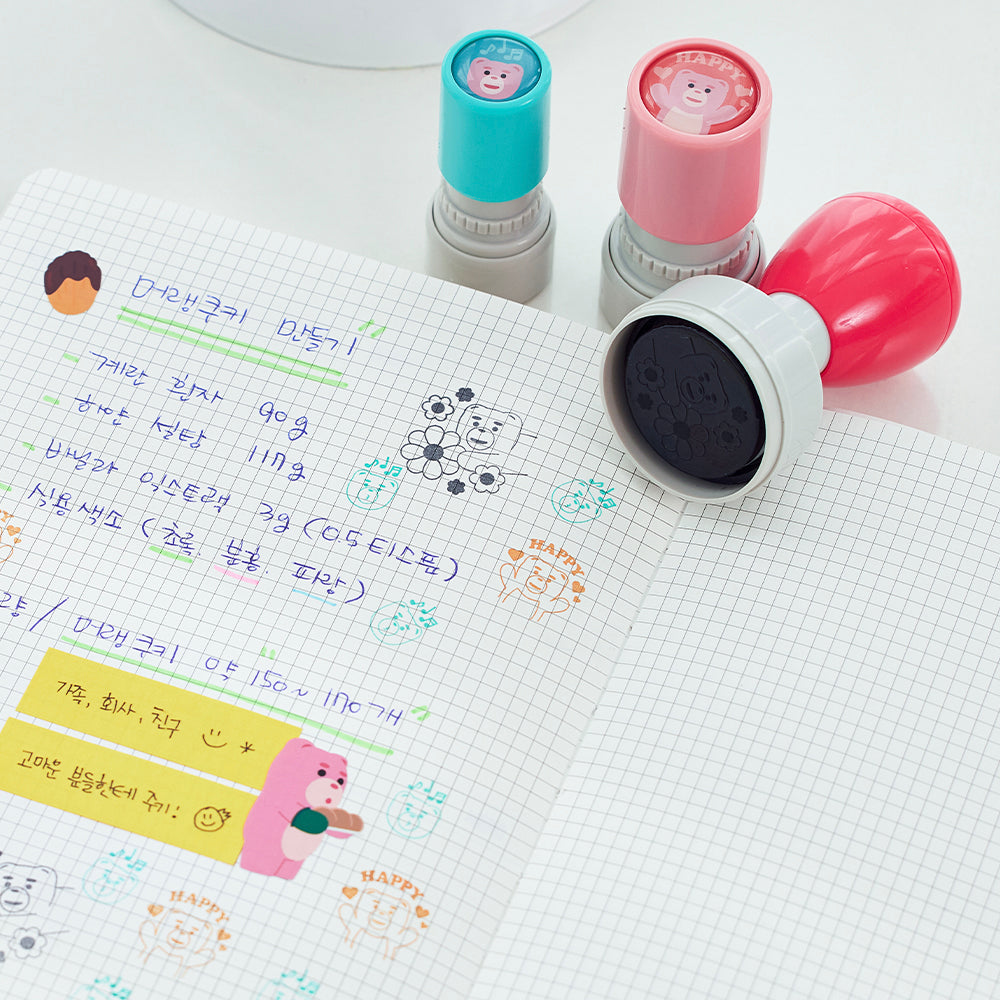 HAPPY
머랭쿠키 만들기
- 계란 흰자 90g
- 하얀 설탕 117g
- 바닐라 익스트랙 3g (0.5티스푼)
식용색소 (초록, 분홍, 파랑)
HAPPY
량 / 머랭쿠키 약 150~170개
가족, 회사, 친구
고마운 분들한테 주기!
HAPPY
HAPPY